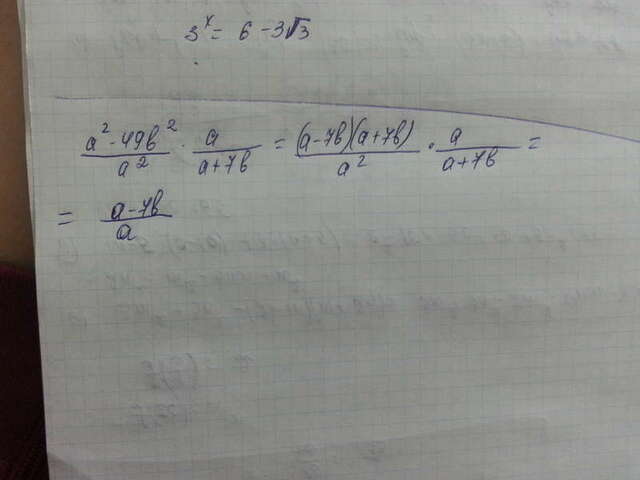 3^x = 6 - 3√3
(a² - 49b²)/a² · a/(a+7b) = (a-7b)(a+7b)/a² · a/(a+7b) =
= (a-7b)/a